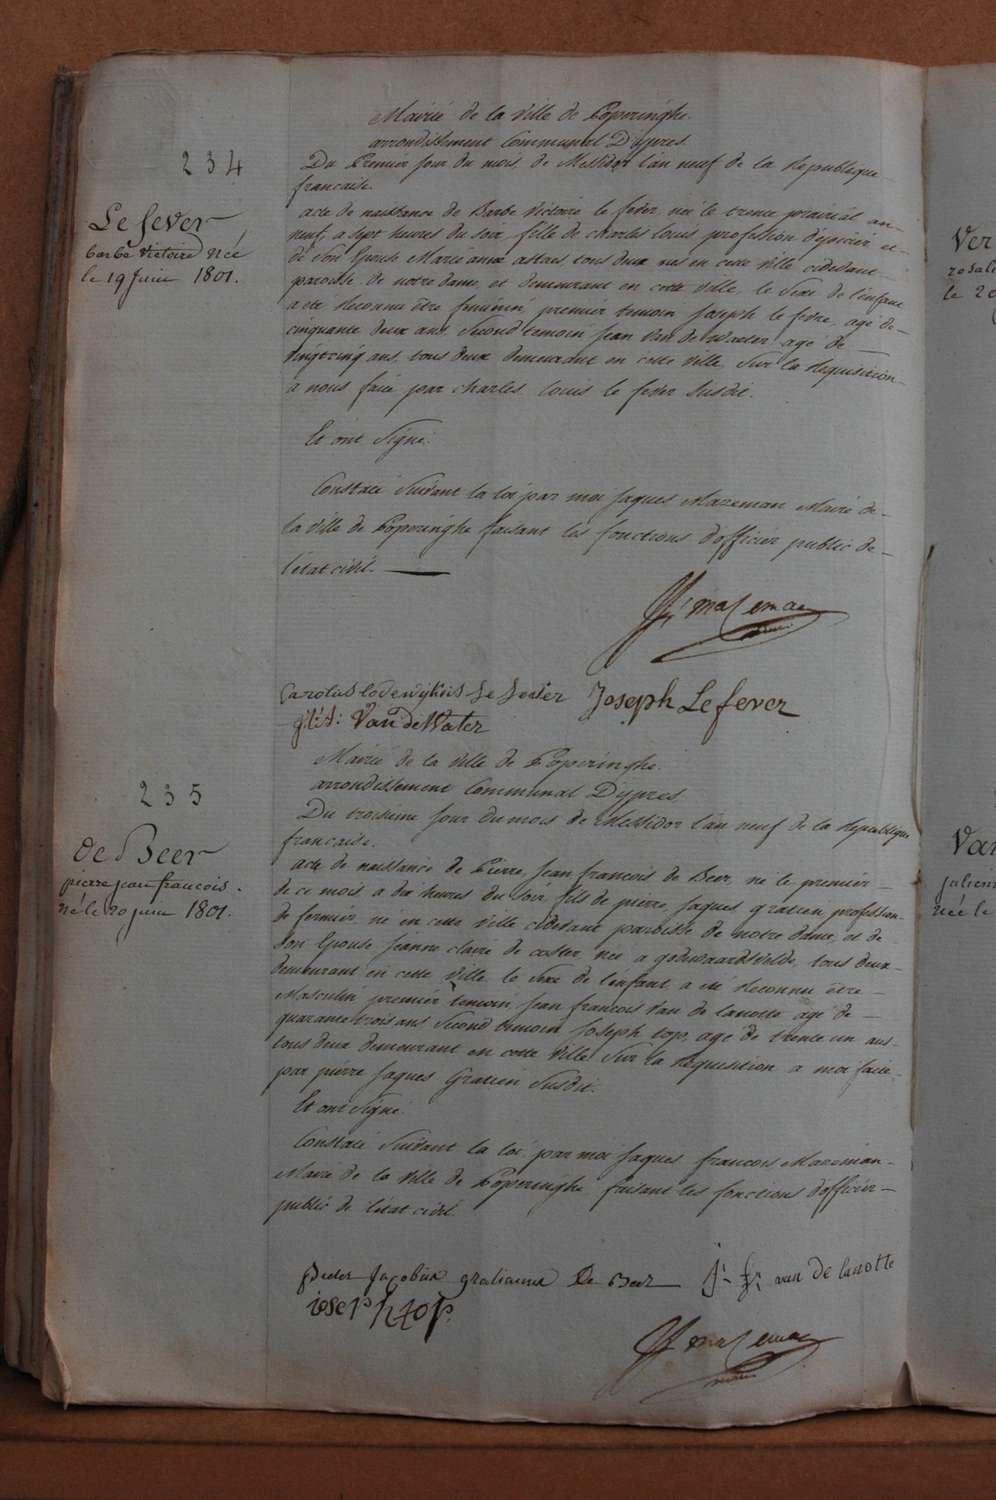 Mairié de la ville de Poperinghe.
arrondissement Communal D'ypres
234
Du Premier jour du mois de Messidor l'an neuf de la Republique
francaise.
Le fever
barbe victoire née
le 19 juin 1801.
acte de naissance de Barbe Victoire le fever neé le trente prairial an
neuf, a sept heures du soir, fille de charles louis profession d'epicier et
de son Epouse Marie anne tous deux nes en cette ville cidevant
paroisse de notre dame, et demeurant en cette ville, le Sexe de l'enfant
a eté Reconnu être feminin, premier temoin Joseph le fevre, agé de
cinquante deux ans, Second temoin Jean Van de Water, age de
vingt cinq ans, tous deux demeurant en cette ville, Sur la Requisition
a nous faite par charles Louis le fever Susdit.
Et ont Signé.
Constaté Suivant la loi par moi Jaques Mazeman Mairé de
la ville de Poperinghe faisant les fonctions d'officier public de
l'etat civil.
J f mazeman
Carolus lodewijkus Le fever Joseph Le fever
Van de Water
Mairié de la ville de Poperinghe.
arrondissement Communal D'ypres
235
Du troisieme Jour du mois de Messidor l'an neuf de la Republique
francaise.
de Beer
pierre jean francois.
né le 20 juin 1801.
acte de naissance de Pierre Jean francois de Beer, né le premier
de ce mois a dix heures du Soir, fils de pierre Jaques gratien profession
de fermier, né en cette ville cidevant paroisse de notre dame, et de
Son Epouse Jeanne claire de coster née a godwaardsvelde, tous deux
demeurant en cette ville, le Sexe de l'enfant a eté Reconnu être
Masculin premier temoin Jean francois Van de lanotte agé de
quarante trois ans Second temoin Joseph top, agé de trente un ans
tous deux demeurant en cette ville Sur la Requisition a moi faite
par pierre Jaques Gratien Susdit.
Et ont Signé.
Constaté Suivant la loi par moi Jaques francois Mazeman
Maire de la ville de Poperinghe faisant les fonctions d'officier
public de l'etat civil.
Pieter Jacobus gratianus De Beer j. fr. van de lanotte
iosep top.
J f mazeman